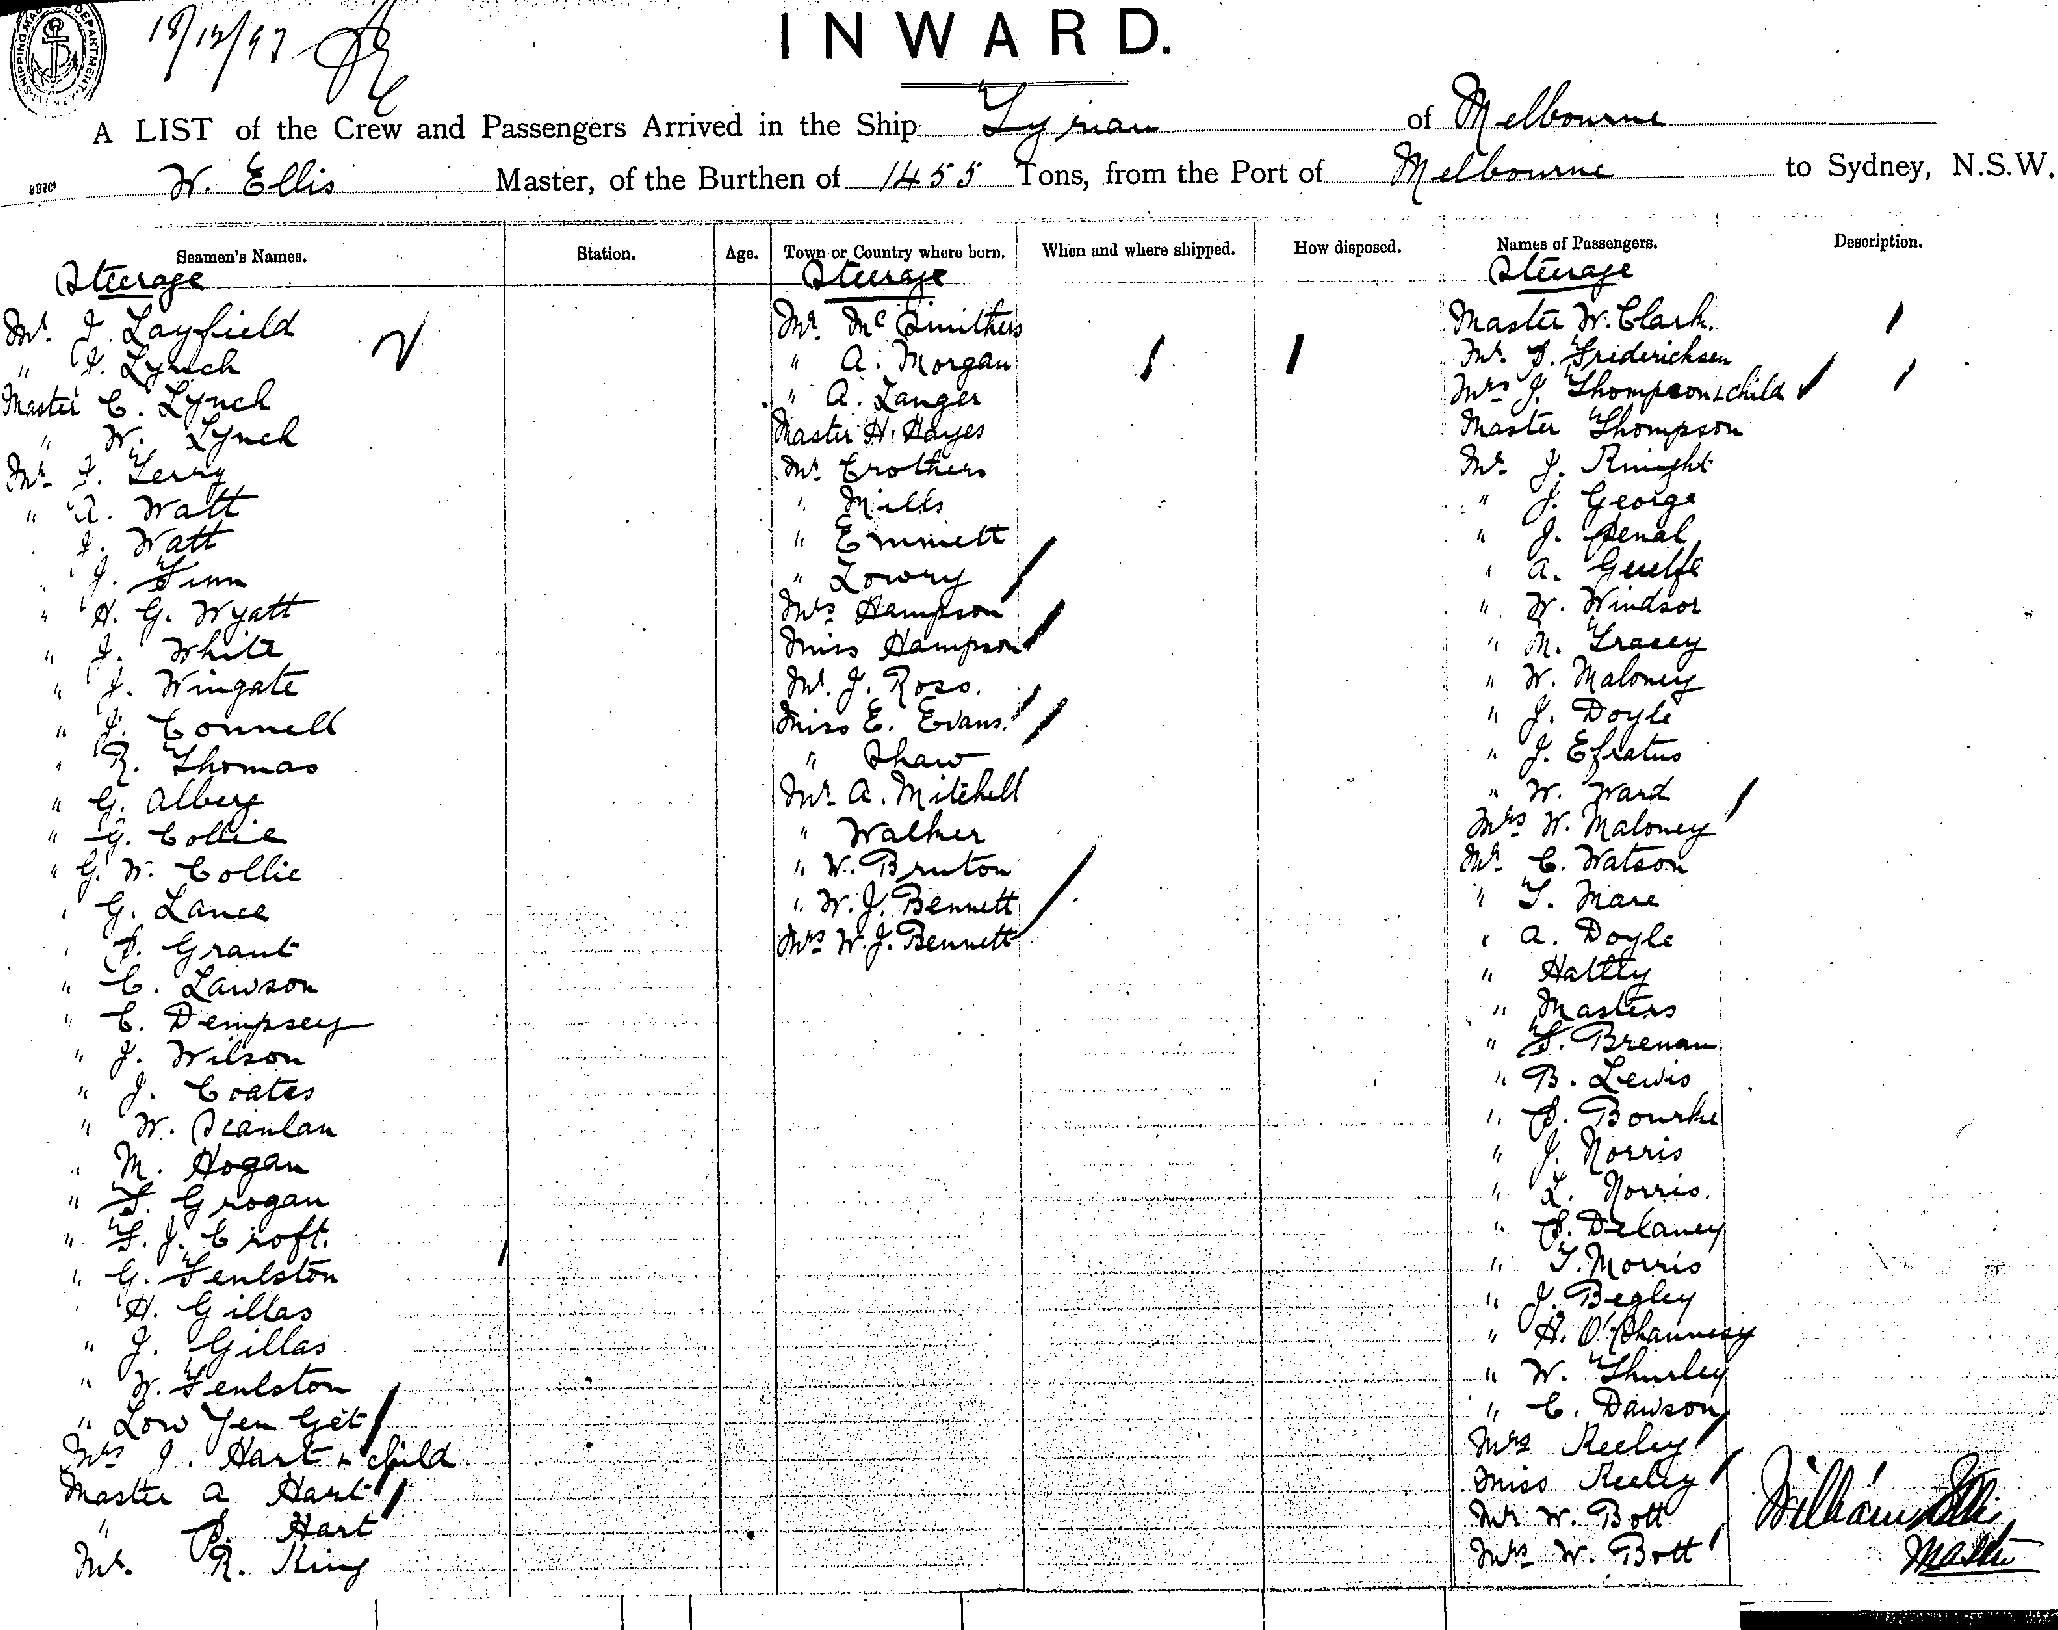 SHIPPING MASTER DEPARTMENT
18/12/97
INWARD.
A LIST of the Crew and Passengers Arrived in the Ship Tyrian of Melbourne
W. Ellis Master, of the Burthen of 1455 Tons, from the Port of Melbourne to Sydney, N.S.W.
Seamen's Names. Station. Age. Town or Country where born. When and where shipped. How disposed. Names of Passengers. Description.
Steerage
Mr. J. Layfield
" J. Lynch
Master C. Lynch
" W. Lynch
Mr. J. Terry
" A. Watt
J. Watt
J. Finn
" H. G. Wyatt
" J. White
" J. Wingate
" J. Connell
" R. Thomas
" G. Alberg
" G. Collie
" G. W. Collie
" G. Lance
" S. Grant
" C. Lawson
" C. Dempsey
" J. Wilson
" J. Coates
" W. Scanlan
" M. Hogan
" T. Grogan
" F. J. Croft.
" G. Fenlston
" H. Gillas
" J. Gillas
" W. Fenlston
" Low Yen Get
Mrs J. Hart & child
Master A Hart
" S. Hart
Mr. R. King
Steerage
Mr. Mc Smithers
" A. Morgan
" A. Langer
Master H. Hayes
Mr. Crothers
" Mills
" Emmett
" Lowry
Mrs Hampson
Miss Hampson
Mr. J. Ross.
Miss E. Evans.
" Shaw
Mr. A. Mitchell
" Walker
" W. Bruton
" W. J. Bennett
Mrs W. J. Bennett
Steerage
Master W. Clark.
Mr. S. Friderichsen
Mrs J. Thompson & child
Master Thompson
Mr. J. Knight
" J. George
" J. Senal
" A. Guelfe
" W. Windsor
" M. Tracey
" W. Maloney
" J. Doyle
" J. Efratus
" W. Ward
Mrs W. Maloney
Mr. C. Watson
" T. Mare
" A. Doyle
" Hattly
" Masters
" T. Brenan
" B. Lewis
" S. Bourke
" J. Norris
" L. Norris.
" S. Delaney
" T. Morris
" J. Begley
" H. O'Shannesy
" W. Thurley
" C. Dawson
Mrs Keeley
Miss Keeley
Mr W. Bott
Mrs W. Bott
William Ellis
Master